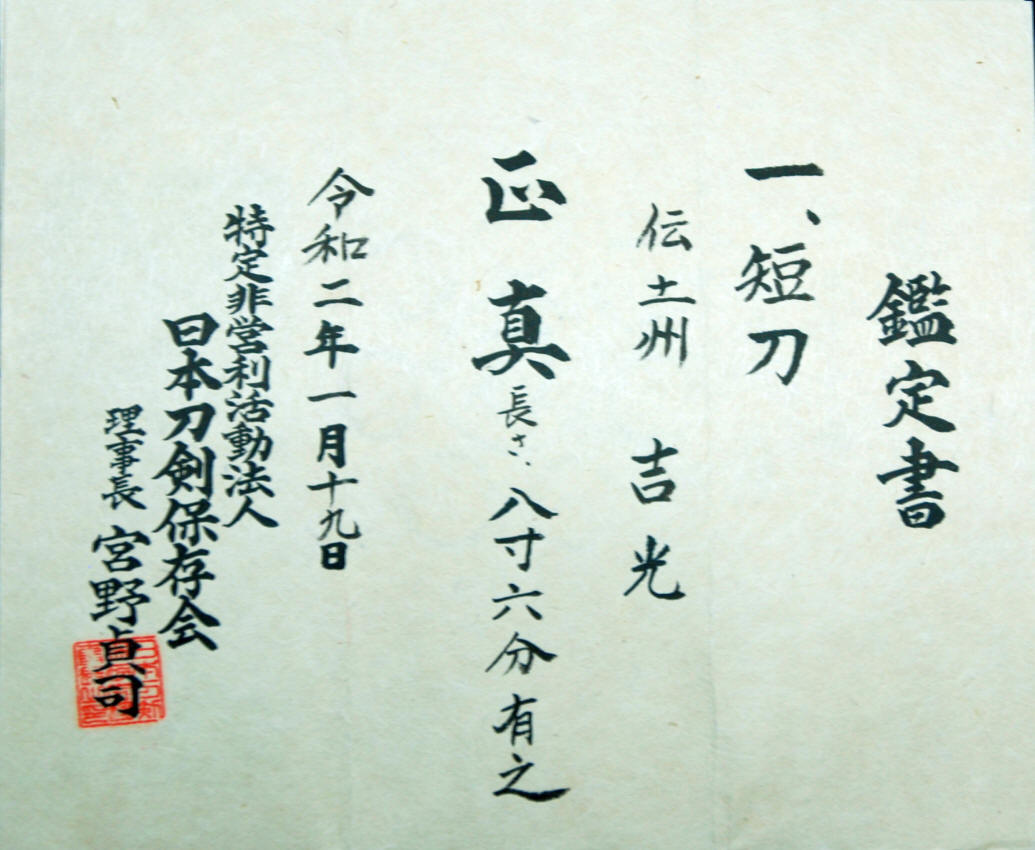 鑑定書
一、短刀
伝土州 吉光
正真 長さ、八寸六分有之
令和二年一月十九日
特定非営利活動法人
日本刀剣保存会
理事長 宮野貞司